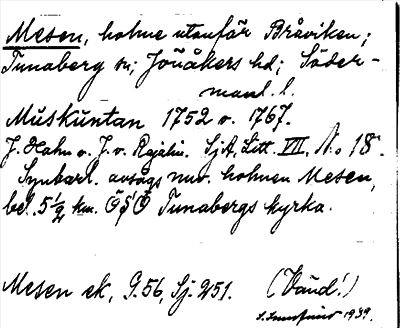 Mesen, holme utanför Bråviken;
Tunaberg sn; Jönåkers hd; Söder-
manl. l.
Muskuntan 1752 o. 1767.
J. Hahn o. J. v. Rajalin. SjA, Litt. VII, No 18.
Synbarl. avsågs nuv. holmen Mesen,
bel. 5½ km. OSO Tunabergs kyrka.
Mesen ek, G.56, Sj. 251. (Vänd!)
1939.